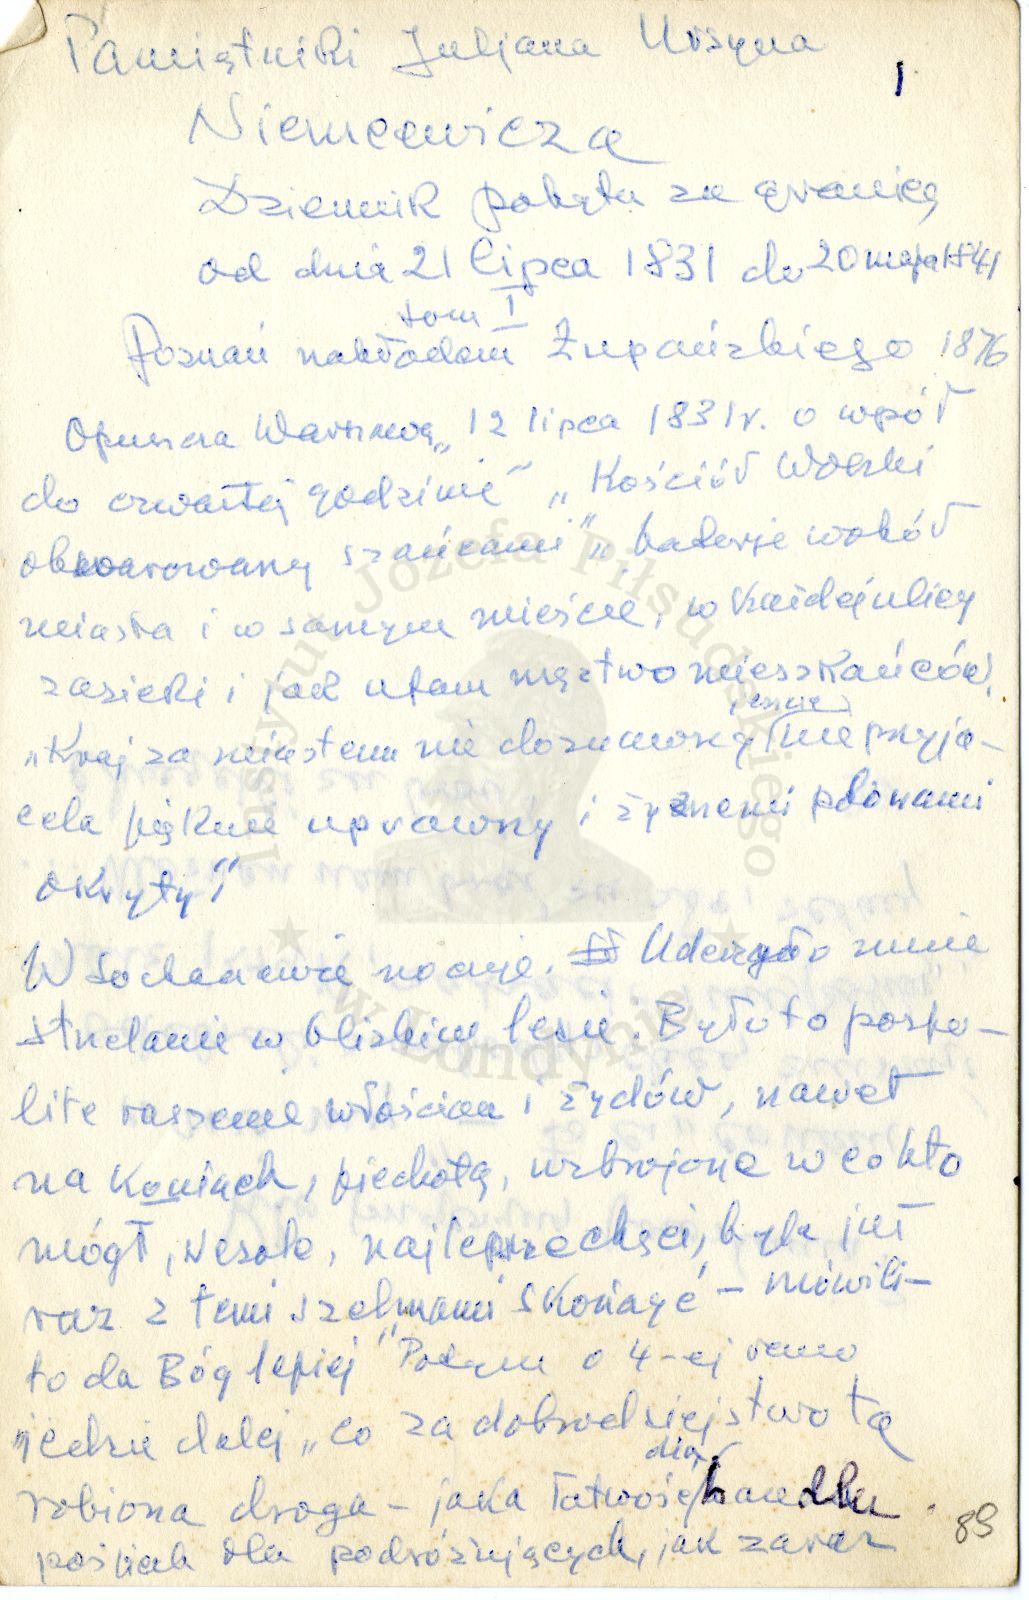 Pamiętniki Juljana Ursyna
1.
Niemcewicza
Dziennik pobytu za granicą
od dnia 21 lipca 1831 do 20 maja 1841
tom I
Poznań nakładem Żupańskiego 1876
Opuszcza Warszawę „12 lipca 1831r. o wpół
do czwartej godzinie" „Kościół Wolski
obwarowany szańcami" „baterje wokół
miasta i w samym mieście, w każdej ulicy
zasieki i jak ufam męztwo mieszkańców,
„Kraj za miastem nie doznawszy jeszcze nieprzyja-
ciela pięknie uprawny i żyznemi polowami
okryty"
W Sochaczewie nocuje. Uderzyło mnie
strzelanie w bliskim lesie. Było to pospo-
lite ruszenie włościan i żydów, nawet
na koniach, piechotą, uzbrojone w co kto
mógł, wesołe, najlepsze chęci, byle już
raz z temi szelmami skończyć – mówili –
to da Bóg lepiej" Potym o 4-ej rano
jedzie dalej „co za dobrodziejstwo tą
robiona droga – jaka łatwość dla handlu
pośpiech dla podróżujących, jak zaraz
89
Instytut Józefa Piłsudskiego
w Londynie